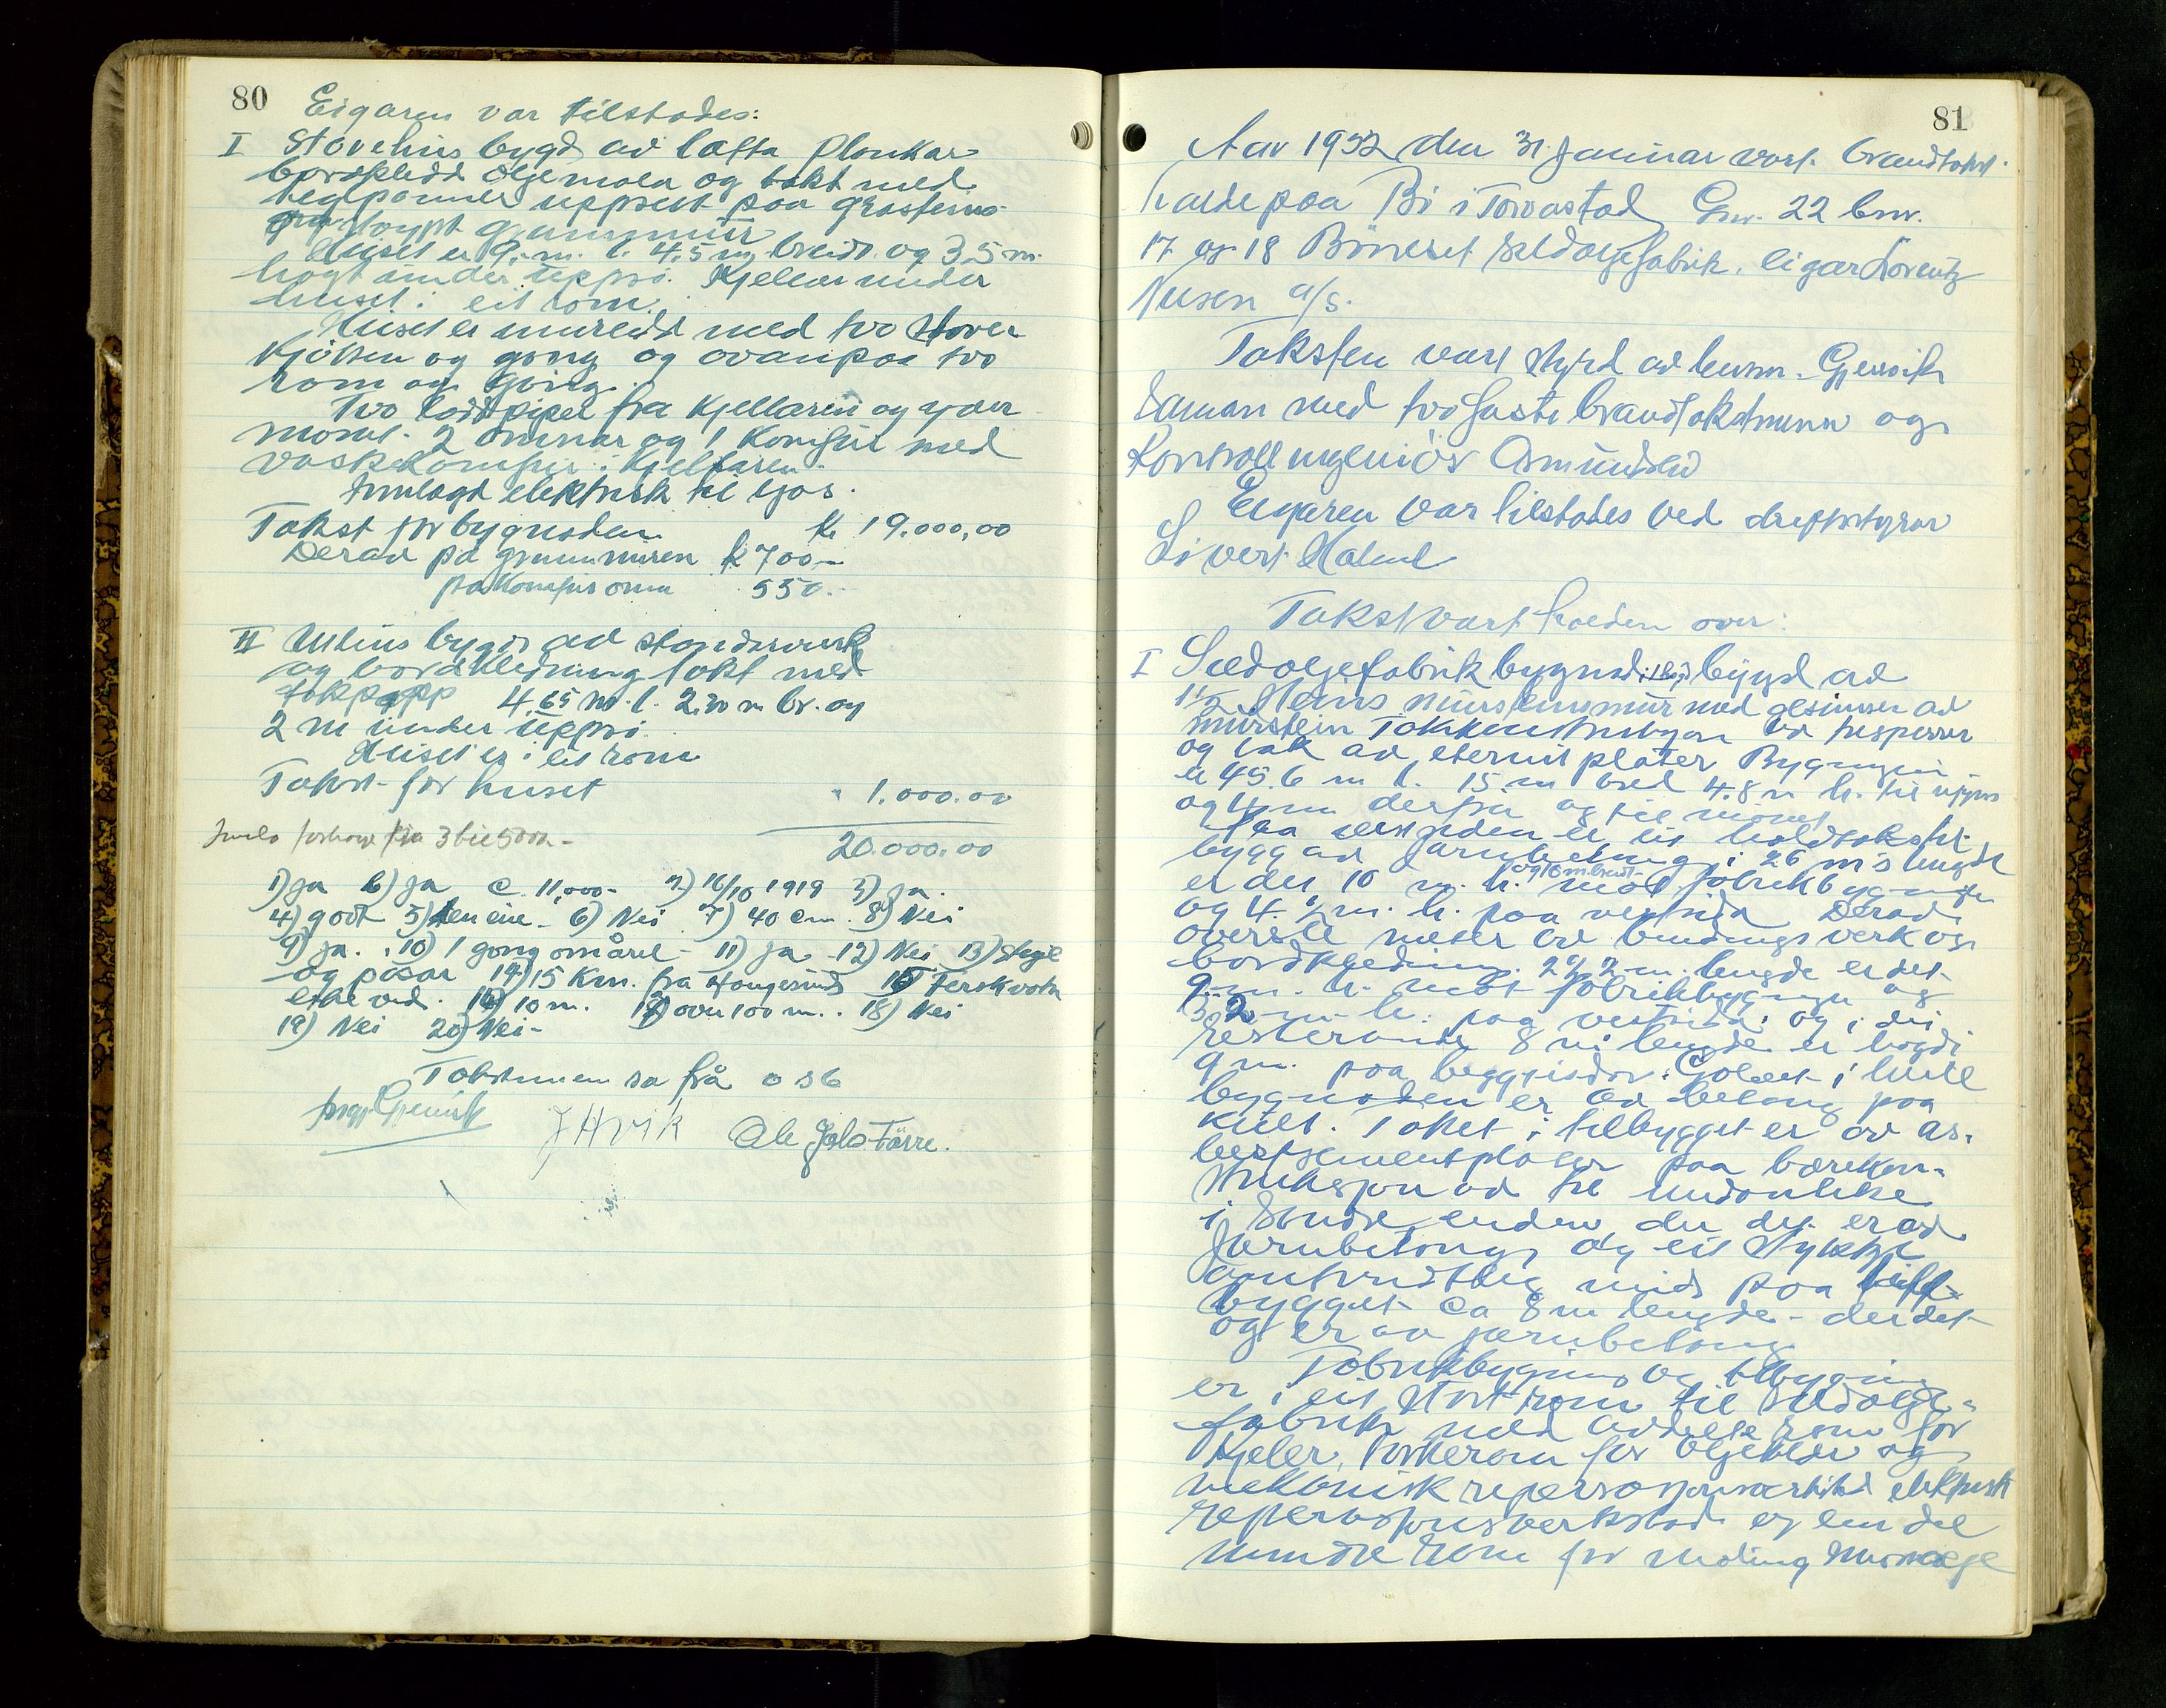 80
Eigaren var tilstades:
I Stovehus bygd av lafta plonkar
bordkledd oljemola og tekt med
teglpanner uppsett paa graasteins
støypt grunnmur
Huset er 9,- m. l. 4,5 m breidt og 3,5 m.
høgt under uppsi. Kjellar under
huset i eit rom.
Huset er innreidd med tvo stover
kjøkken og gong og ovanpaa tvo
rom og gong.
Tvo loddpipel fra kjellaren og yver
mønet. 2 omnar og 1 komfur med
vaskekomfur i kjellaren.
Innlagd elektrisk til ljos.
Takst for bygnaden Kr 19.000,00
Derav på grunnmuren kr 700,-
på komfur omn 550.-
II Uthus bygd av standarverk
og bordkledning tekt med
takpapp 4,65 m. l. 2,30 m br. og
2 m under uppsi.
Huset er i eit rom
Takst for huset " 1.000.00
3 til 5000.-
20.000.00
1) Ja b) Ja c. 11,000- 2) 16/10 1919 3) Ja.
4) godt 5) 6) Nei 7) 40 cm. 8) Nei
9) Ja. 10) 1 gong omåret - 11) Ja 12) Nei 13) Stige
og pøsar 14) 15 Km. fra Haugesund 15) Ferskvatn
like ved. 16) 10 m. 17) over 100 m. 18) Nei
19) Nei 20) Nei-
Takstmenn sa frå o s b
Gjervik J H Vik Ole Jak. Førre.
81
Aar 1952 den 31. Januar vart brandtakst
halde paa Bø i Torvastad Gnr. 22 bnr.
17 og 18 Bøneset Sildoljefabrik, eigar Lorentz
a/s.
Taksten vart styrd av lensm. Gjervik
saman med tvo faste brandtakstmenn og
Kontrollingeniør Amundsen
Eigaren var tilstades ved driftstyrar
Sivert
Takst vart halden over:
I Sildoljefabrikbygnad i 1 høgd bygd av
1 1/2 steins murstensmur med gesimser av
murstein Takkonstruksjon av tresperrer
og tak av eternitplater Bygningen
er 45.6 m l. 15 m bred 4.8 m h. til uppsi
og 4 m derfra og til mønet
Paa vestsiden er eit halvtakstil-
bygg av jarnbetong i 26 m's lengde
er det 10 m. h. og 16 m. breidt mot fabrikbygningen
og 4. m. h. paa vestsida Derav
øverste meter av bindingsverk og
bordkledning. m. lengde er det
9 m. h. mot fabrikbygningen og
3,2 m h. paa vestsida, og i dei
resterande 8 m lengde er høgdi
9 m. paa beggesidor. Golvet i hele
bygnaden er av betong paa
kult. Taket i tilbygget er av as-
bestsementplater paa berekon-
struksjon av tre undantake
i søndre enden der det er av
jernbetong, og eit stykke
midt paa
bygget ca 8 m lengde - der det
og er av jarnbetong
Fabrikbygning og tilbygning
er i eit stort rom til sildolje-
fabrik med avdelte rom for
kjeler, for oljekler og
mekanisk reperasjonsverkstad elektrisk
reperasjonsverkstad og ein del
mindre rom for maling